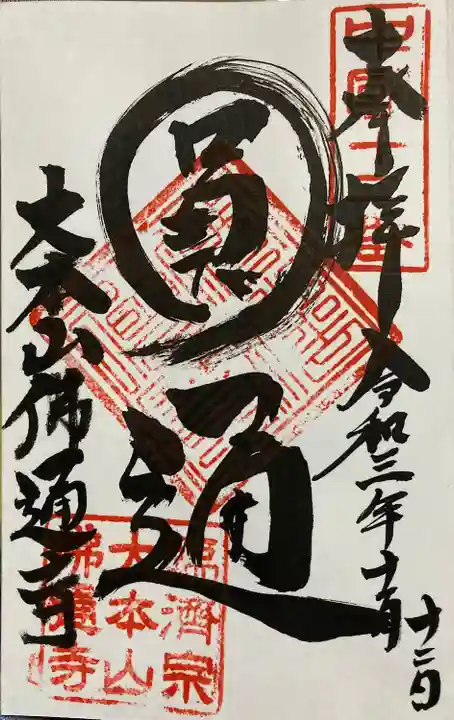 奉拝
中國十二番
令和三年十一月十二日
圓通
大本山佛通寺
臨濟宗
大本山
佛通寺